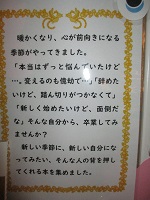 暖かくなり、心が前向きになる
季節がやってきました。
「本当はずっと悩んでいたけど
…、変えるのも億劫で…」「辞めた
いけど、踏ん切りがつかなくて」
「新しく始めたいけど、面倒だ
な」そんな自分から、卒業してみ
ませんか?
新しい季節に、新しい自分に
なってみたい、そんな人の背を押し
てくれる本を集めました。